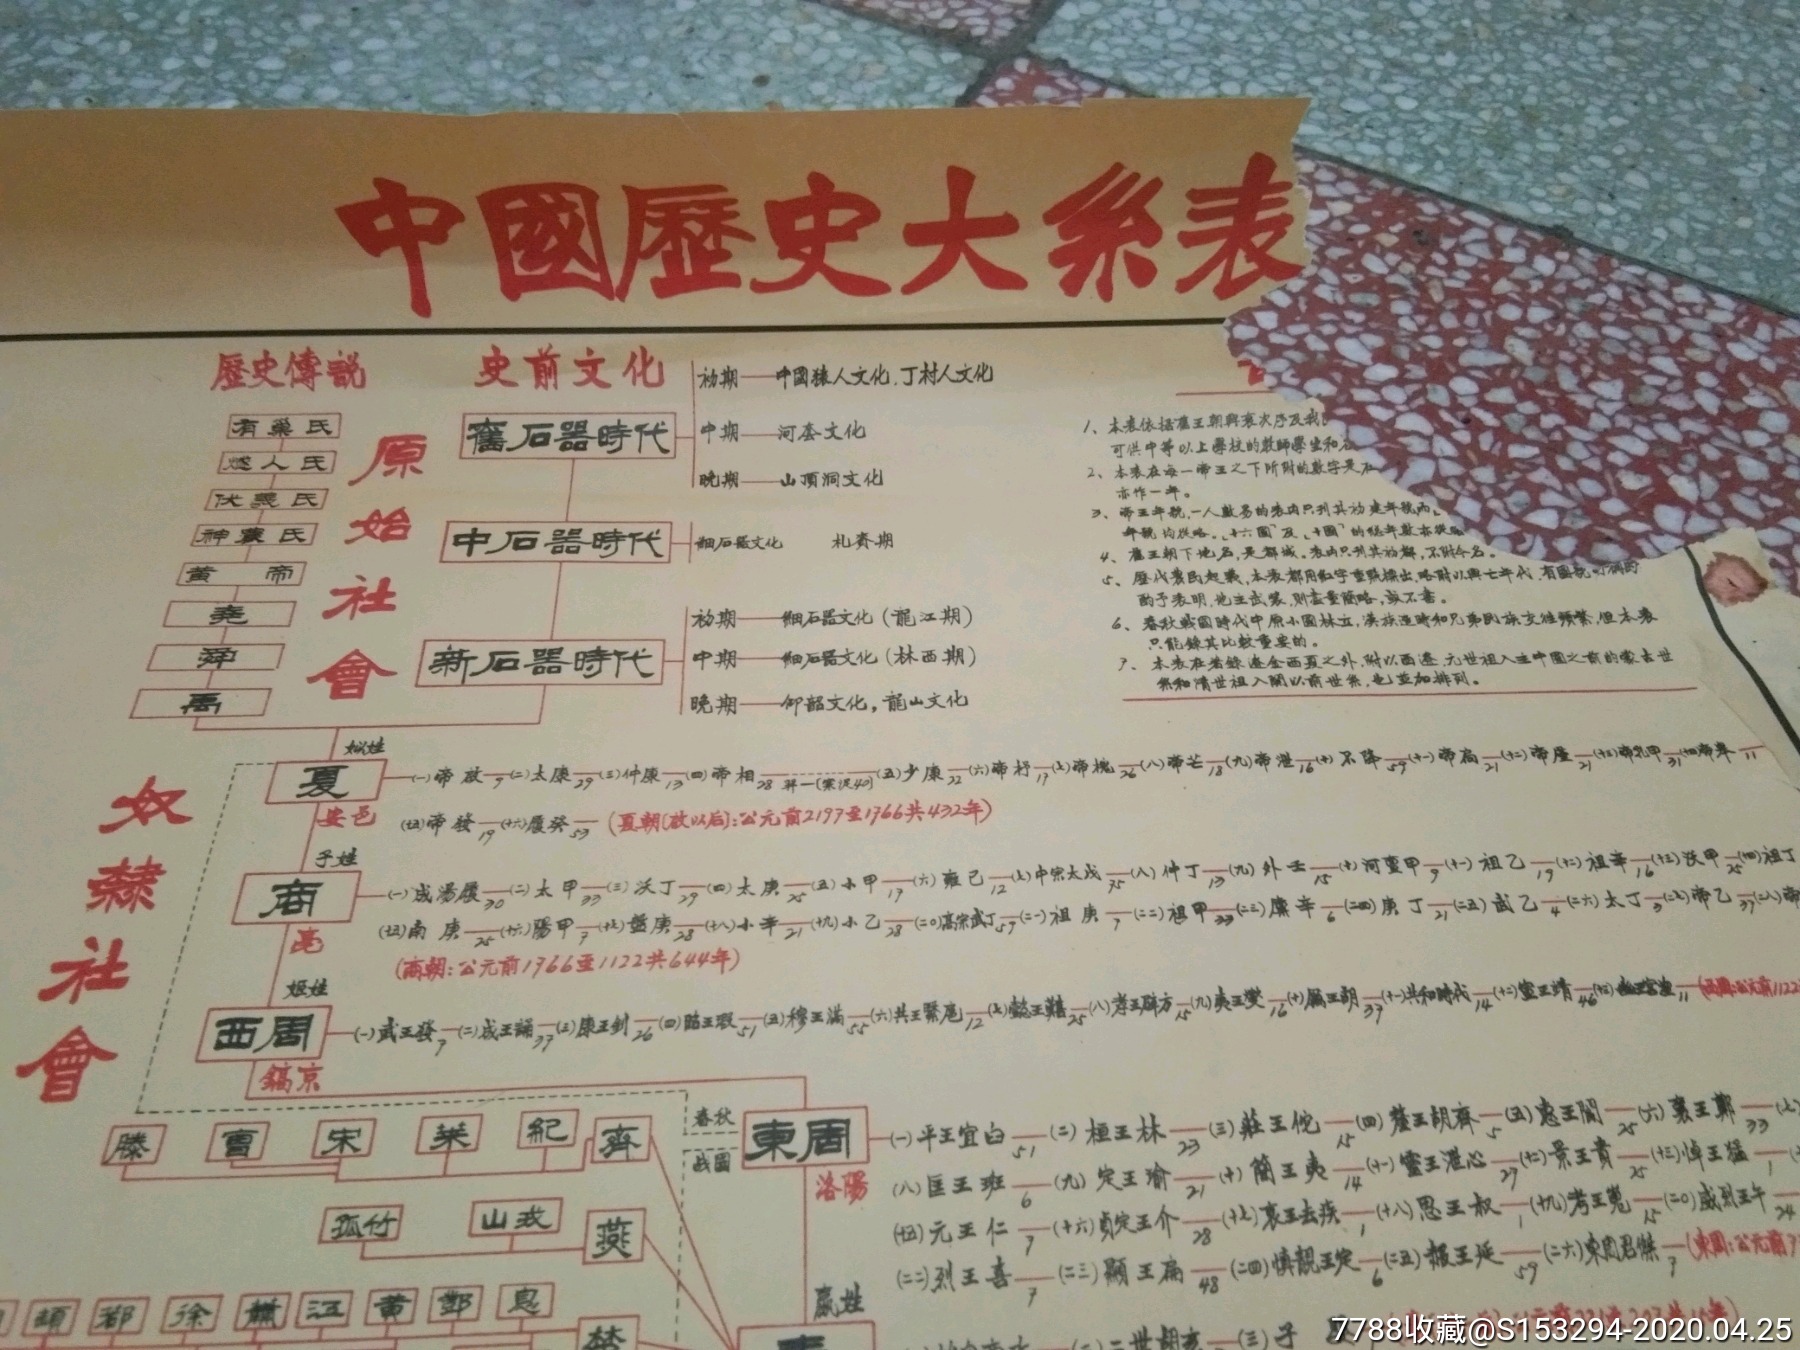 中國歷史大系表
歷史傳說
史前文化
有巢氏
燧人氏
伏羲氏
神農氏
黄帝
堯
舜
禹
原始社會
舊石器時代
初期 中國猿人文化.丁村人文化
中期 河套文化
晚期 山頂洞文化
中石器時代
細石器文化 札賚期
新石器時代
初期 細石器文化(龍江期)
中期 細石器文化(林西期)
晚期 仰韶文化,龍山文化
1、本表依据舊王朝興衰次序及我
可供中等以上學校的教師學生和
2、本表在每一帝王之下所附的數字是在
亦作一年。
3、帝王年號,一人數易的表内只列其初建年號而
年號均從略。"十六國"及"十國"的總年數亦從
4、舊王朝下地名,是都城。表内只列其初都,不附今名。
5、歷代農民起義,本表都用紅字重點標出,略附以興亡年代,有國號
酌予表明,地主武裝,則盡量簡略,或不書。
6、春秋戰國時代中原小國林立,漢族逐時和兄弟民族交往頻繁,但本表
只能錄其比較重要的。
7、本表在著錄遼金西夏之外,附以西遼,元世祖入主中國之前的蒙古世
系和清世祖入關以前世系,也並加排列。
奴隸社會
姒姓
夏
安邑
(一)帝啟 9 (二)太康 29 (三)仲康 13 (四)帝相 28 羿一(寒浞40) (五)少康 22 (六)帝杼 17 (七)帝槐 26 (八)帝芒 18 (九)帝泄 16 (十)不降 59 (十一)帝扃 21 (十二)帝廑 21 (十三)帝孔甲 31 (十四)帝皋 11
(十五)帝發 19 (十六)履癸 53 (夏朝(啟以后):公元前2197至1766共432年)
子姓
商
亳
(一)成湯履 30 (二)太甲 33 (三)沃丁 29 (四)太庚 25 (五)小甲 17 (六)雍己 12 (七)中宗太戊 75 (八)仲丁 13 (九)外壬 15 (十)河亶甲 9 (十一)祖乙 19 (十二)祖辛 16 (十三)沃甲 25 (十四)祖丁
(十五)南庚 25 (十六)陽甲 7 (十七)盤庚 28 (十八)小辛 21 (十九)小乙 28 (二〇)高宗武丁 59 (二一)祖庚 7 (二二)祖甲 33 (二三)廩辛 6 (二四)庚丁 21 (二五)武乙 4 (二六)太丁 3 (二七)帝乙 37 (二八)帝
(商朝:公元前1766至1122共644年)
姬姓
西周
鎬京
(一)武王發 7 (二)成王誦 37 (三)康王釗 26 (四)昭王瑕 51 (五)穆王滿 55 (六)共王繄扈 12 (七)懿王囏 25 (八)孝王辟方 15 (九)夷王燮 16 (十)厲王胡 37 (十一)共和時代 14 (十二)宣王靖 46 (十三)幽王宮湼 11 (西周:公元前1122
春秋
战國
東周
洛陽
(一)平王宜臼 51 (二)桓王林 23 (三)莊王佗 15 (四)釐王胡齊 5 (五)惠王閬 25 (六)襄王鄭 33 (七)
(八)匡王班 6 (九)定王瑜 21 (十)簡王夷 14 (十一)靈王泄心 27 (十二)景王貴 25 (十三)悼王猛 1
(十五)元王仁 7 (十六)貞定王介 28 (十七)哀王去疾 1 (十八)思王叔 1 (十九)考王嵬 15 (二〇)威烈王午 24
(二二)烈王喜 7 (二三)顯王扁 48 (二四)慎靚王定 6 (二五)赧王延 59 (二六)東周君傑 7 (東周:公元前7
滕 曹 宋 萊 紀 齊
孤竹 山戎 燕
頓 鄀 徐 蕭 江 黄 鄧 息
楚
嬴姓
秦
(二)二世胡亥 (三)子
7788收藏@S153294-2020.04.25